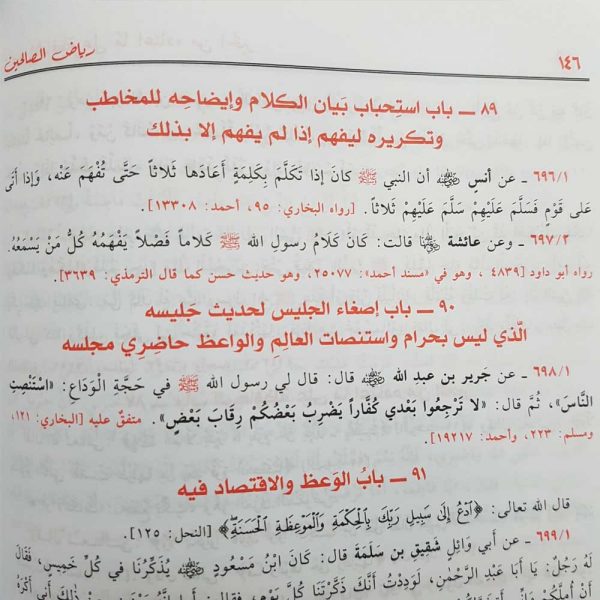 رياض الصالحين
١٤٦
٨٩ ـ باب استِحباب بَيان الكلام وإيضاحِه للمخاطب
وتكريره ليفهم إذا لم يفهم إلا بذلك
٦٩٦/١ ـ عن أنس ﵁ أن النبي ﷺ كانَ إذا تَكَلَّمَ بِكَلِمَةٍ أعَادَها ثَلاثاً حَتَّى تُفْهَمَ عَنْه، وَإذا أتَى
عَلى قَوْمٍ فَسَلَّمَ عَلَيْهِمْ سَلَّمَ عَلَيْهِمْ ثَلاثاً. [رواه البخاري: ٩٥، أحمد: ١٣٣٠٨].
٦٩٧/٢ ـ وعن عائشة ﵂ قالت: كَانَ كَلامُ رسولِ الله ﷺ كَلاماً فَصْلاً يَفْهَمُهُ كُلُّ مَنْ يَسْمَعُهُ.
رواه أبو داود [٤٨٣٩ ، وهو في «مسند أحمد»: ٢٥٠٧٧، وهو حديث حسن كما قال الترمذي: ٣٦٣٩].
٩٠ ـ باب إصغاء الجليس لحديث جَليسه
الَّذي ليس بحرام واستنصات العالِم والواعظ حاضِرِي مجلسه
٦٩٨/١ ـ عن جَرير بن عبد الله ﵁ قال: قال لي رسولُ الله ﷺ في حَجَّةِ الْوَدَاعِ: «اسْتَنْصِتِ
النَّاسَ»، ثُمَّ قال: «لا تَرْجِعُوا بَعْدي كُفَّاراً يَضْرِبُ بَعْضُكُمْ رِقَابَ بَعْضٍ». متفقٌ عليه [البخاري: ١٢١،
ومسلم: ٢٢٣، وأحمد: ١٩٢١٧].
٩١ ـ بابُ الوَعظ والاقتصاد فيه
قال الله تعالى: ﴿ٱدْعُ إِلَىٰ سَبِيلِ رَبِّكَ بِٱلْحِكْمَةِ وَٱلْمَوْعِظَةِ ٱلْحَسَنَةِ﴾ [النحل: ١٢٥].
٦٩٩/١ ـ عن أبي وائلٍ شَقِيقِ بن سَلَمَةَ قال: كَانَ ابْنُ مَسْعُودٍ ﵁ يُذَكِّرُنَا في كُلِّ خَمِيسٍ، فَقَالَ
لَهُ رَجُلٌ: يَا أبَا عَبْدِ الرَّحْمٰنِ، لَوَدِدْتُ أنَّكَ ذَكَّرْتَنَا كُلَّ يَوْمٍ، فَقَالَ: أما إنَّهُ يَمْنَعُني مِنْ ذٰلِكَ أني أكْرَهُ